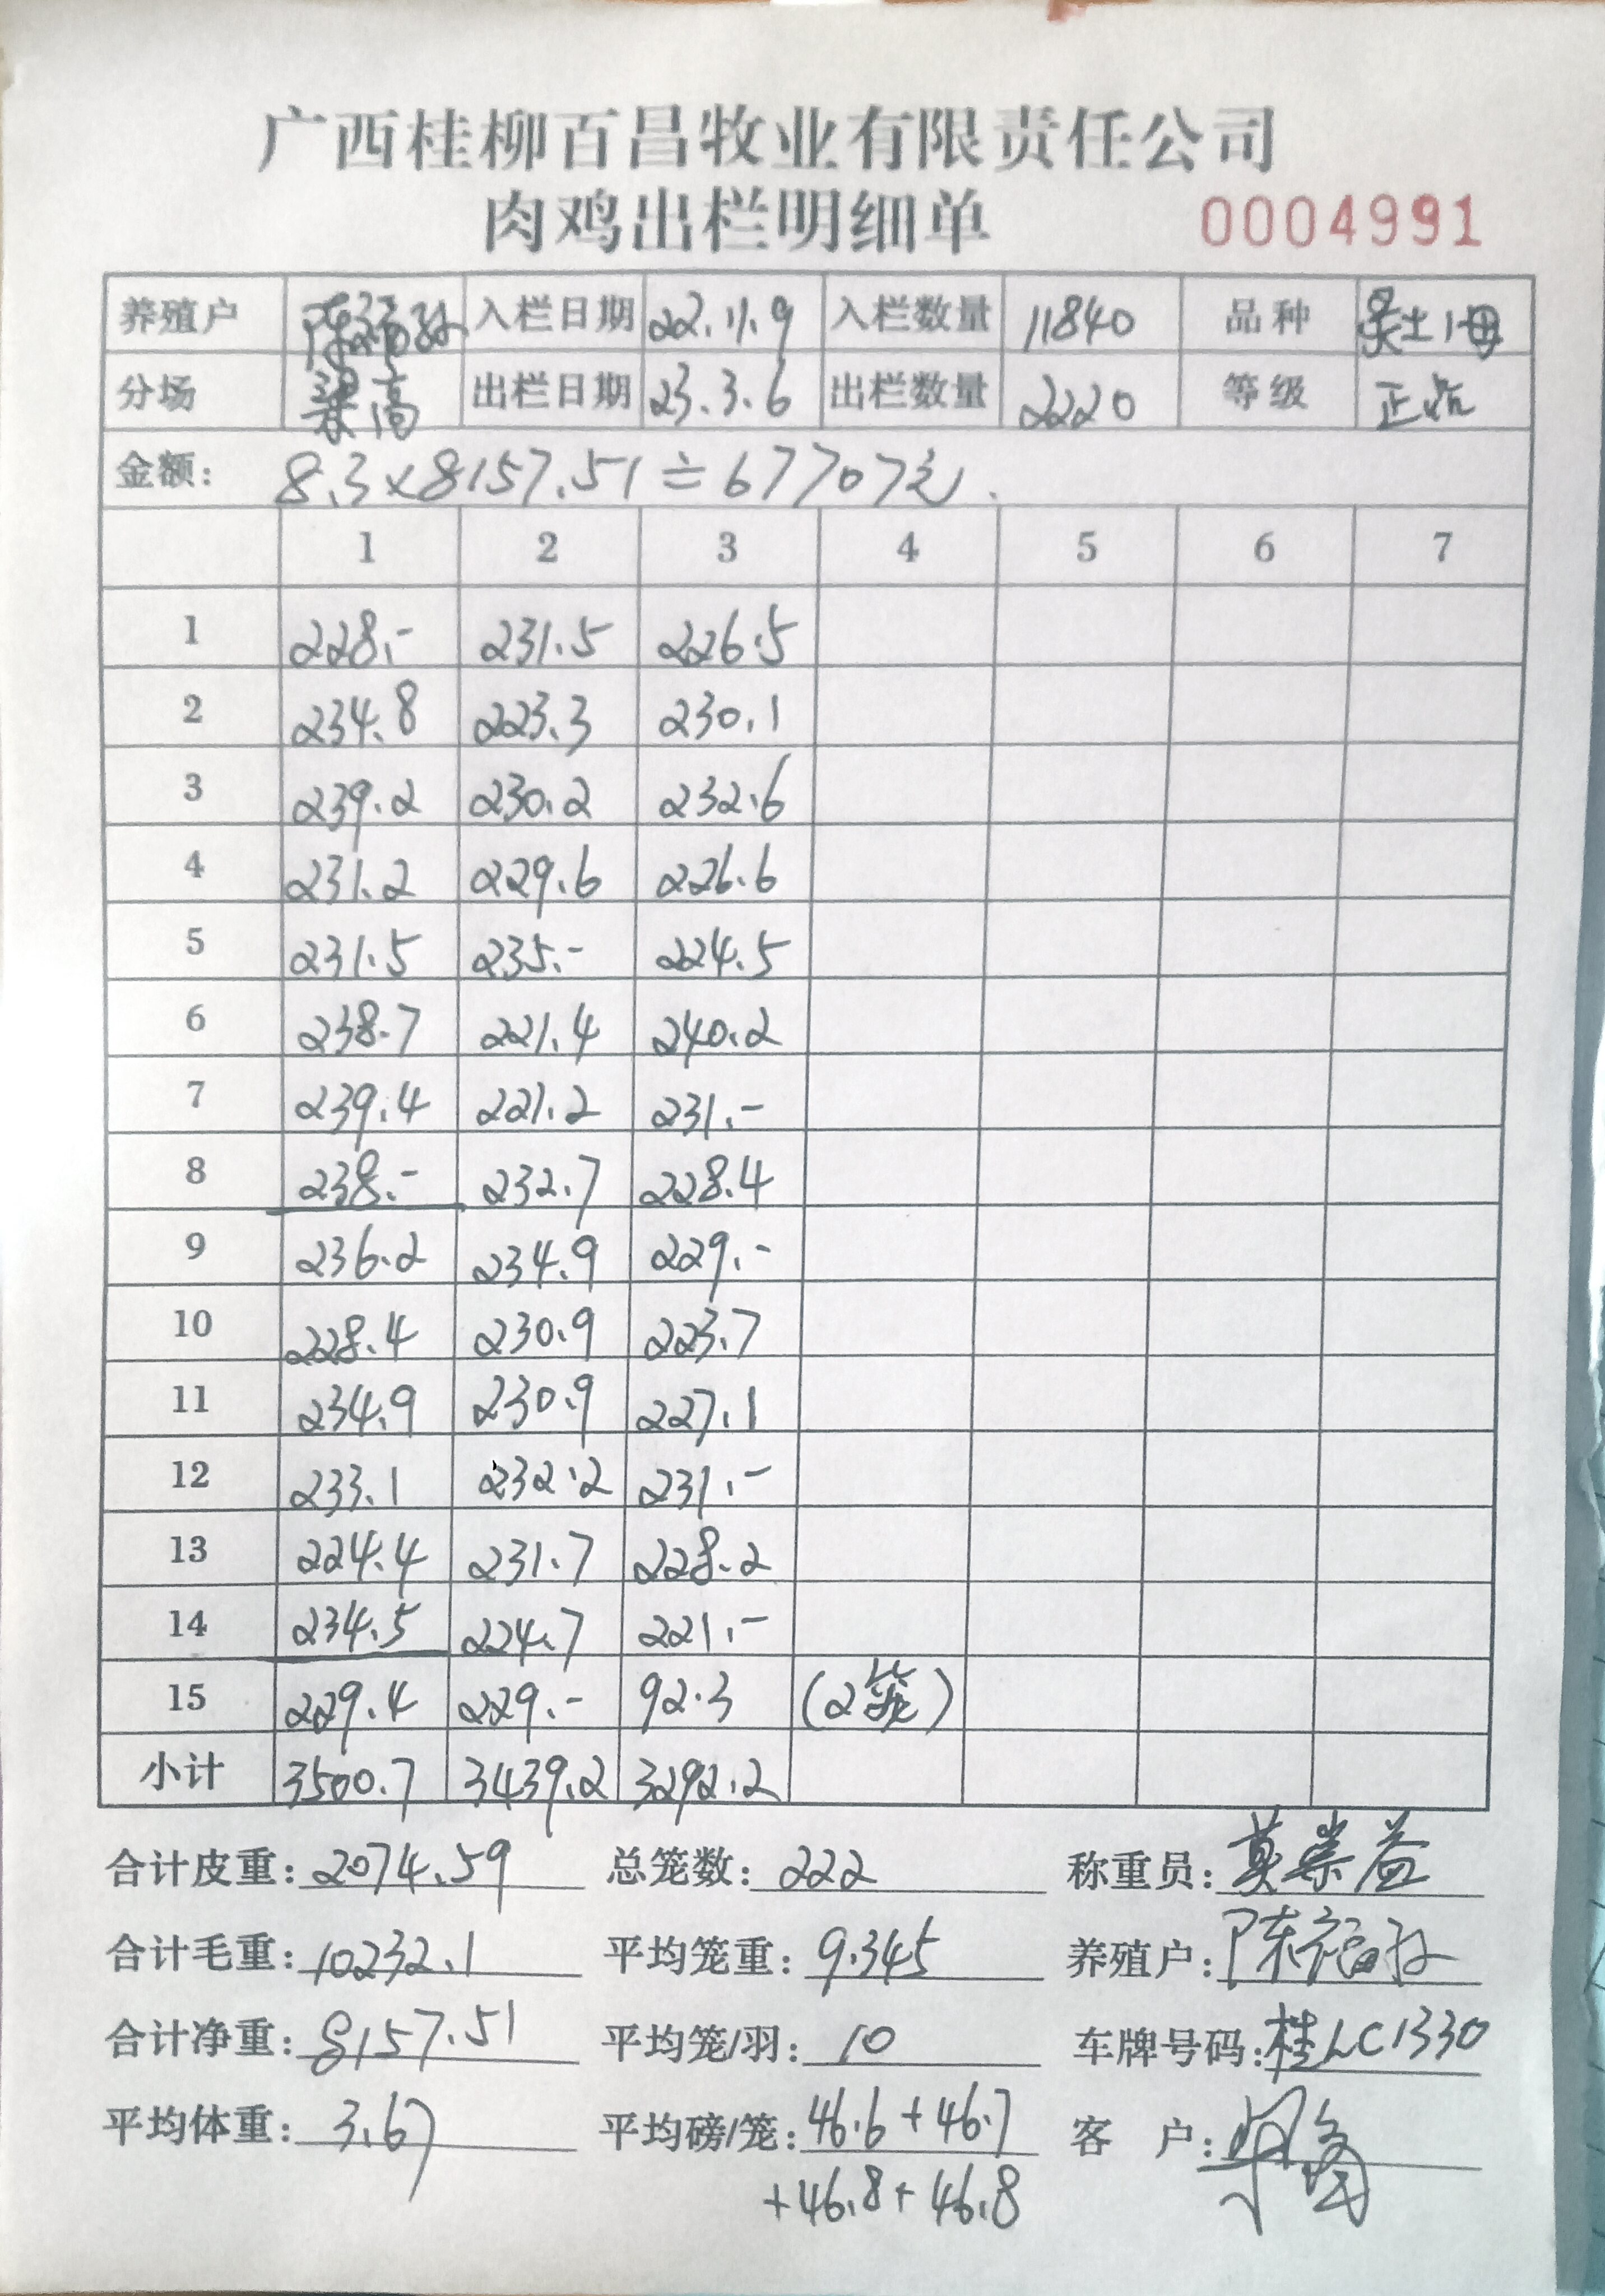 广西桂柳百昌牧业有限责任公司
肉鸡出栏明细单 0004991
养殖户 入栏日期 22.11.9 入栏数量 11840 品种 土1母
分场 高 出栏日期 23.3.6 出栏数量 2220 等级 正品
金额: 8.3×8157.51≐67707元.
1 2 3 4 5 6 7
1 228.- 231.5 226.5
2 234.8 223.3 230.1
3 239.2 230.2 232.6
4 231.2 229.6 226.6
5 231.5 235.- 224.5
6 238.7 221.4 240.2
7 239.4 221.2 231.-
8 238.- 232.7 228.4
9 236.2 234.9 229.-
10 228.4 230.9 223.7
11 234.9 230.9 227.1
12 233.1 232.2 231.-
13 224.4 231.7 228.2
14 234.5 224.7 221.-
15 229.4 229.- 92.3 (2笼)
小计 3500.7 3439.2 3292.2
合计皮重: 2074.59 总笼数: 222 称重员: 莫崇益
合计毛重: 10232.1 平均笼重: 9.345 养殖户: 陈福
合计净重: 8157.51 平均笼/羽: 10 车牌号码: 桂LC1330
平均体重: 3.67 平均磅/笼: 46.6+46.7 客 户:
+46.8+46.8